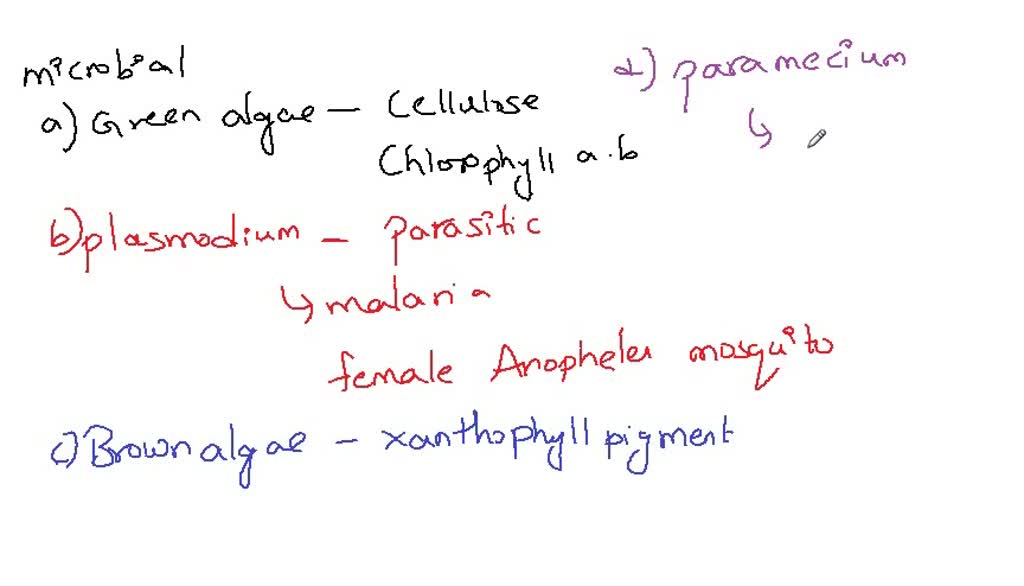 microbial
a) Green algae – Cellulose
Chlorophyll a.b
b) plasmodium – parasitic
↳ malaria
female Anopheles mosquito
c) Brown algae – xanthophyll pigment
d) paramecium
↳